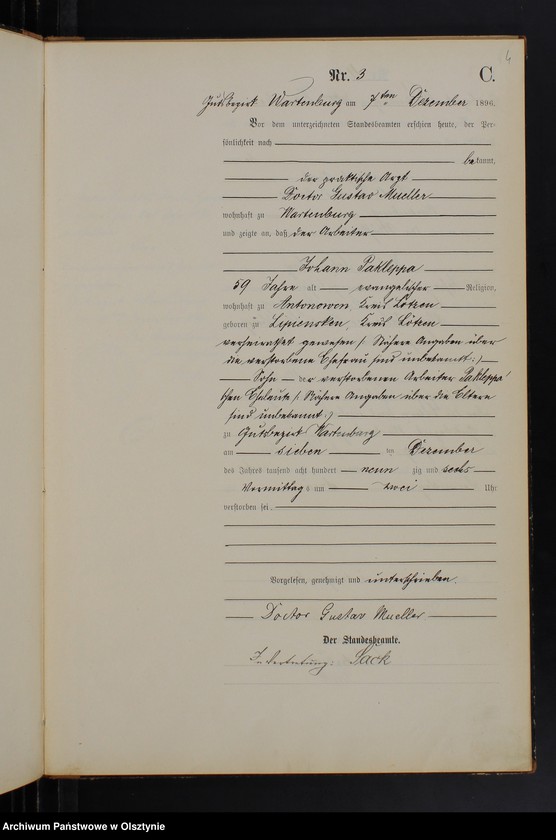 4
Nr. 3 C.
Gutsbezirk Wartenburg am 7ten Dezember 1896.
Vor dem unterzeichneten Standesbeamten erschien heute, der Per-
sönlichkeit nach
bekannt,
der praktische Arzt
Doctor Gustav Mueller
wohnhaft zu Wartenburg
und zeigte an, daß der Arbeiter
Johann Pakleppa
59 Jahre alt evangelischer Religion,
wohnhaft zu Antonowen, Kreis Lötzen
geboren zu Lipiensken, Kreis Lötzen
verheirathet gewesen (Nähere Angaben über
die verstorbene Ehefrau sind unbekannt.)
Sohn der verstorbenen Arbeiter Pakleppa'
schen Eheleute (Nähere Angaben über die Eltern
sind unbekannt.)
zu Gutsbezirk Wartenburg
am sieben ten Dezember
des Jahres tausend acht hundert neun zig und sechs
Vormittags um zwei Uhr
verstorben sei.
Vorgelesen, genehmigt und unterschrieben.
Doctor Gustav Mueller
Der Standesbeamte.
In Vertretung: Sack
Archiwum Państwowe w Olsztynie